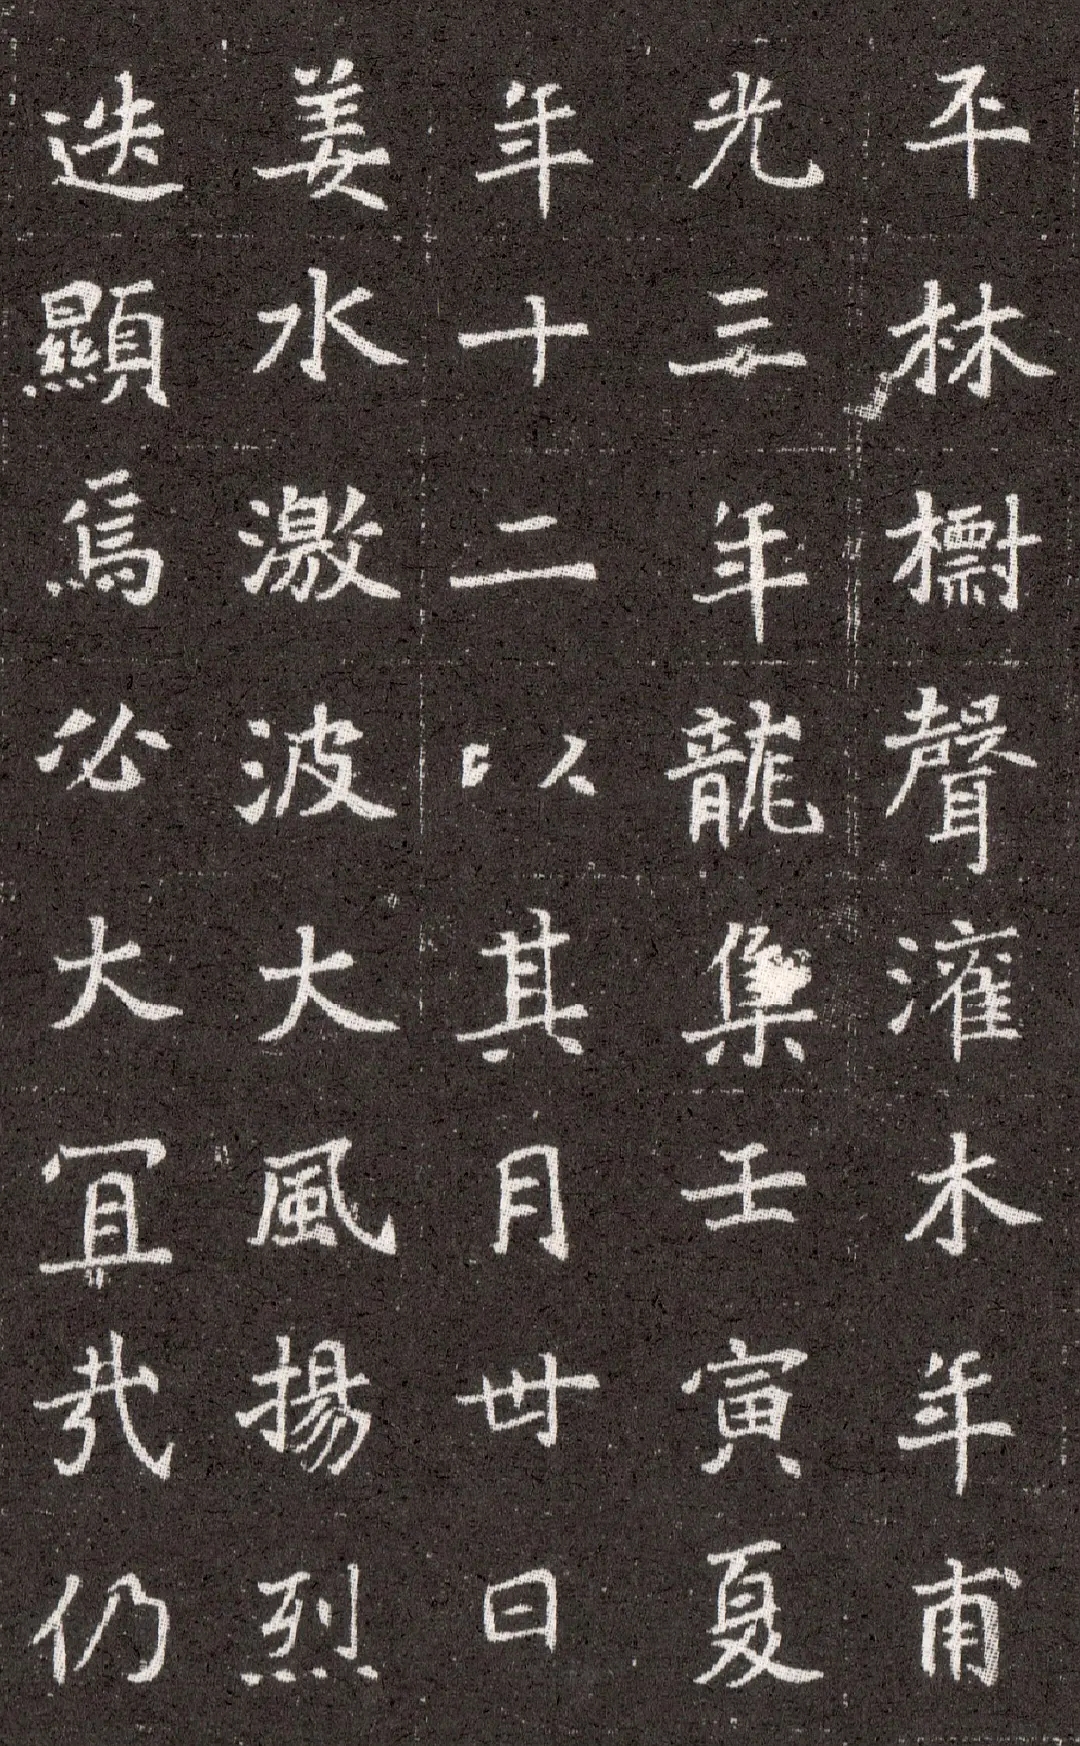 平林樹聲灌木年甫
光三年龍集壬寅夏
年十二以其月卅日
姜水激波大風揚烈
迭顯焉必大冝哉仍